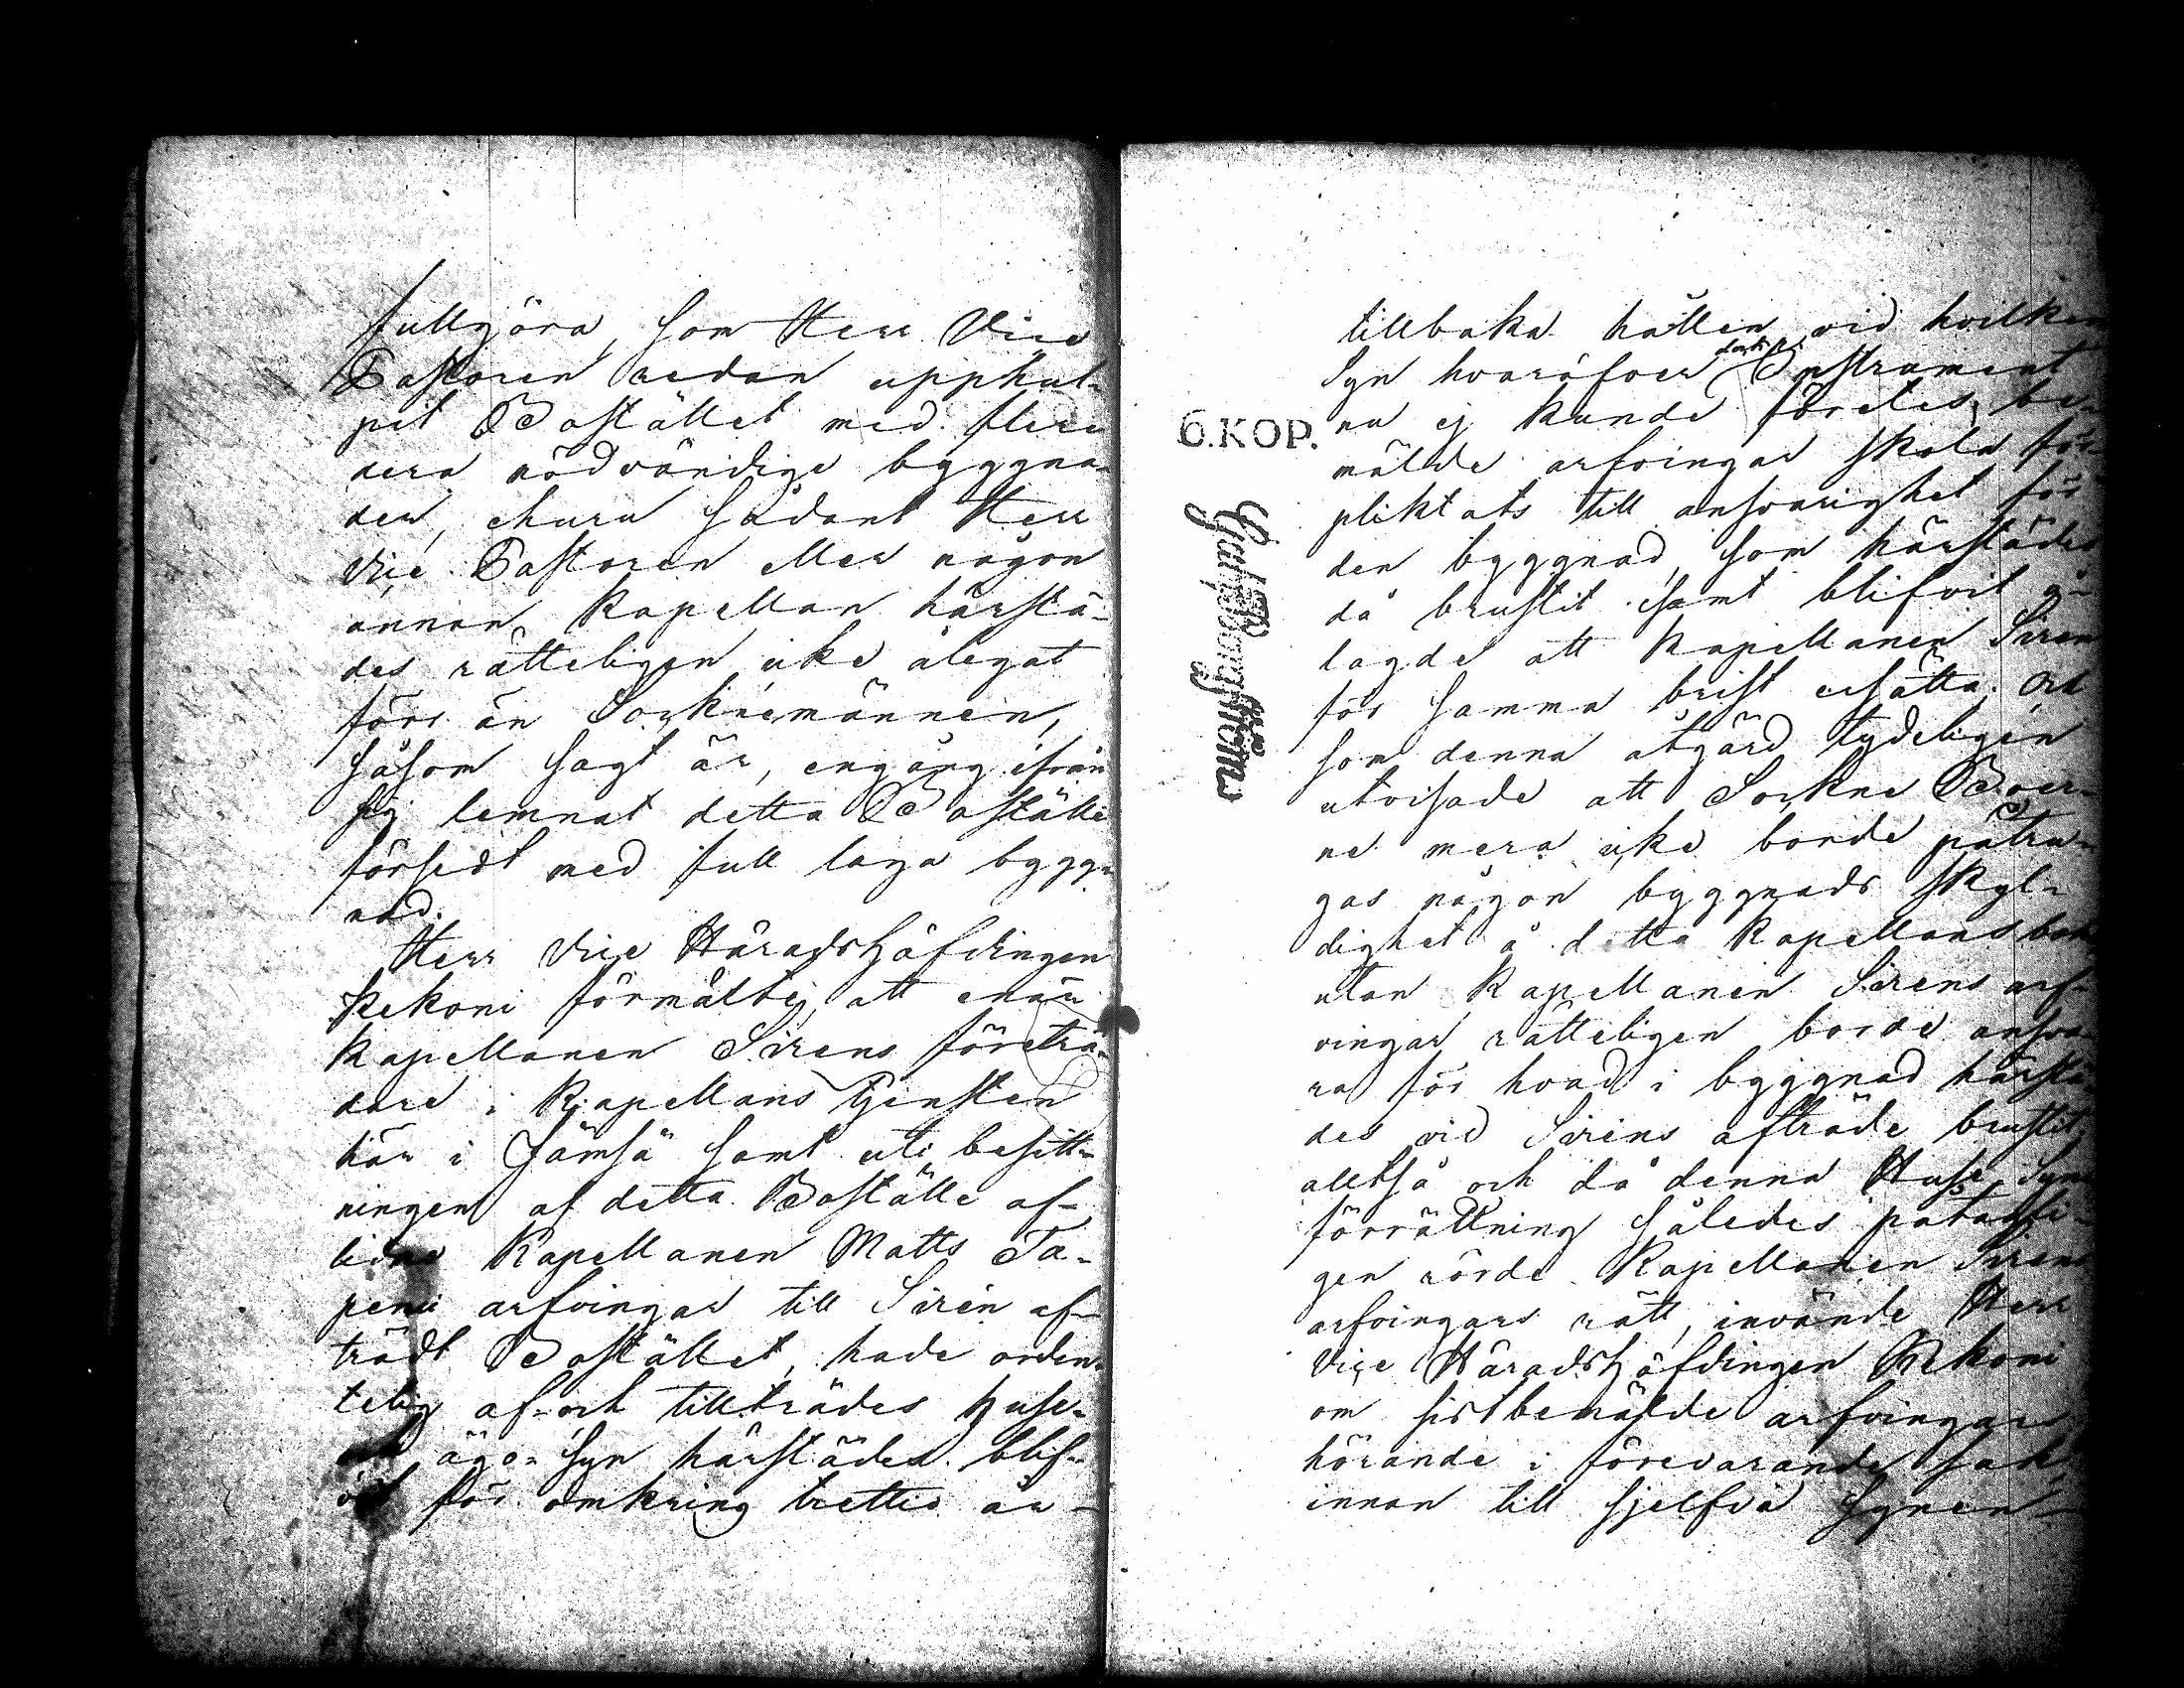 fullgöra, som Herr Vice
Pastoren redan upphul-
pit Bostället med flere
dera nödvändige byggna-
der, ehuru sådant Herr
Vice Pastoren eller någon
annan Kapellan härstä-
des rätteligen icke ålegat
förr än Socknemännen,
såsom sagt är, engång ifrån
sig lemnat detta Boställe
försedt med full laga bygg-
nad.
Herr Vice Häradshöfdingen
Kekoni förmälte, att enär
Kapellanen Sirens företrä-
dare i Kapellans tjensten
här i Jämsä samt uti besitt-
ningen af detta Boställe af-
lidne Kapellanen Matts Ta-
penii arfvingar till Sirén af-
trädt Bostället, hade orden-
telig af- och tillträdes huse-
ägo-syn härstädes blif-
vit för omkring trettio år
tillbaka hållen vid hvilken
Syn hvaröfver Instrument
nu ej kunde företes, be-
mälde arfvingar skola för-
pliktats till ansvarighet för
den byggnad, som härstädes
då brustit samt blifvit å-
lagde att Kapellanen Siren
för samma brist ersätta. Och
som denna åtgärd tydeligen
utvisade att Sockne Boer-
ne mera icke borde påtru-
gas någon byggnads skyl-
dighet å detta Kapellansbohl
utan Kapellanen Sirens arf-
vingar rätteligen borde ansva-
ra för hvad i byggnad härstä-
des vid Sirens afträde brustit,
alltså och då denna Huse Syns
förrättning således påtageli-
gen rörde Kapellanen Sirens
arfvingars rätt, invände Herr
Vice Häradshöfdingen Kekoni
om sistbemälde arfvingars
hörande i förevarande sak,
innan till sjelfva synen
6.KOP.